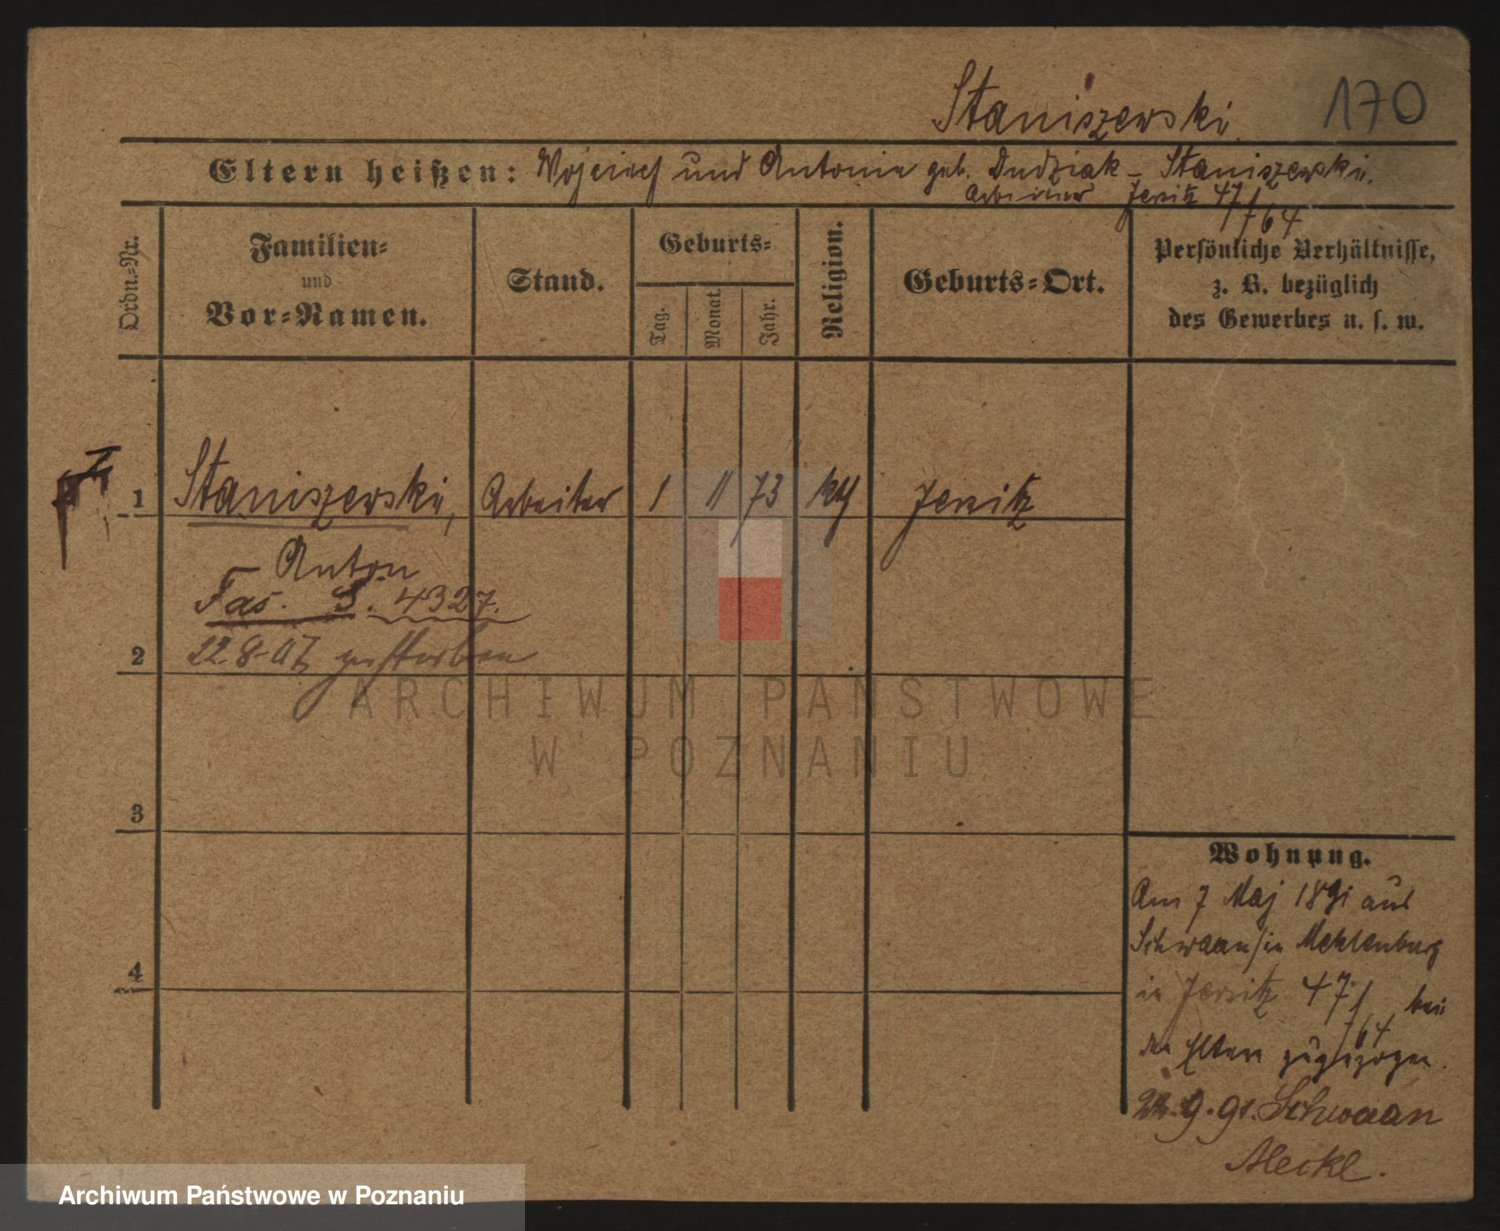 Staniszewski 170
Eltern heißen: Wojciech und Antonie geb. Dudziak – Staniszewski.
Arbeiter Jersitz 47/764
Ordn.-Nr.
Familien-
und
Vor-Namen.
Stand.
Geburts-
Tag.
Monat.
Jahr.
Religion.
Geburts-Ort.
Persönliche Verhältnisse,
z. B. bezüglich
des Gewerbes u. s. w.
1 Staniszewski, Arbeiter 1 11 73 Jersitz
Anton
Fas. S. 4327.
2 22.8.07 gestorben
3
4
Wohnung.
Am 7 Maj 1891 aus
Schwaan/in Meklenburg
in Jersitz 47/764 bei
den Eltern zugezogen.
9.91. Schwaan
Meckl.
ARCHIWUM PAŃSTWOWE
W POZNANIU
Archiwum Państwowe w Poznaniu